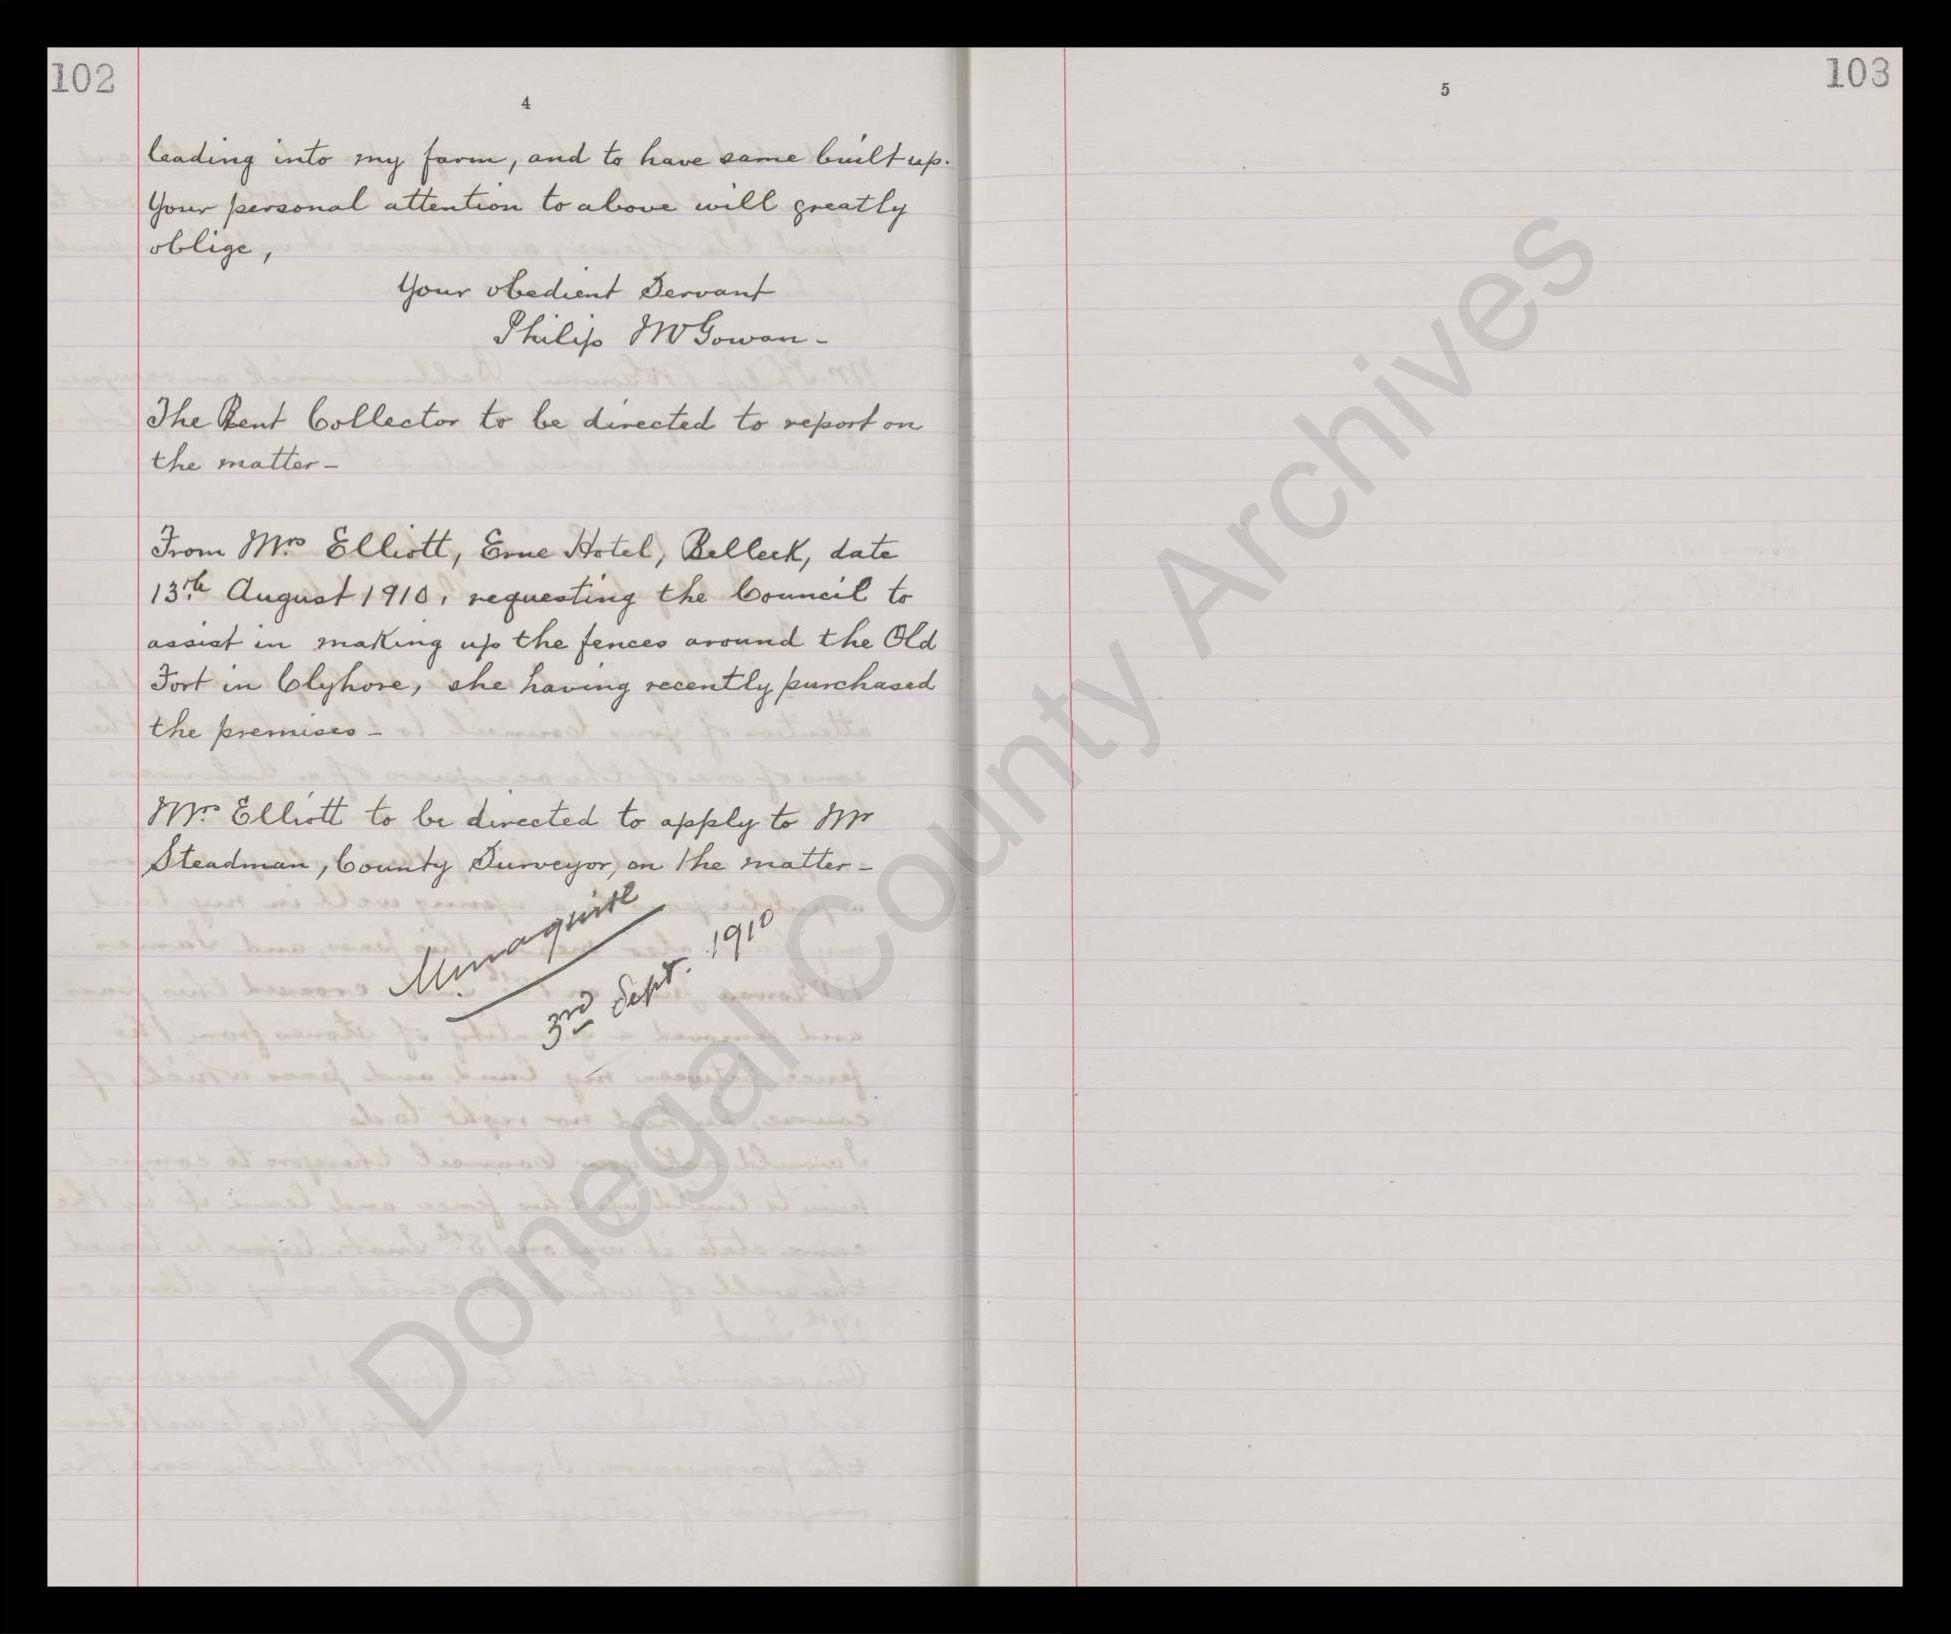 102
4
leading into my farm, and to have same built up.
Your personal attention to above will greatly
oblige,
Your obedient Servant
Philip McGowan -
The Rent Collector to be directed to report on
the matter -
From Mrs Elliott, Erne Hotel, Belleek, date
13th August 1910, requesting the Council to
assist in making up the fences around the Old
Fort in Clyhore, she having recently purchased
the premises -
Mrs Elliott to be directed to apply to Mr
Steadman, County Surveyor, on the matter -
3rd Sept. 1910
103
5
Donegal County Archives